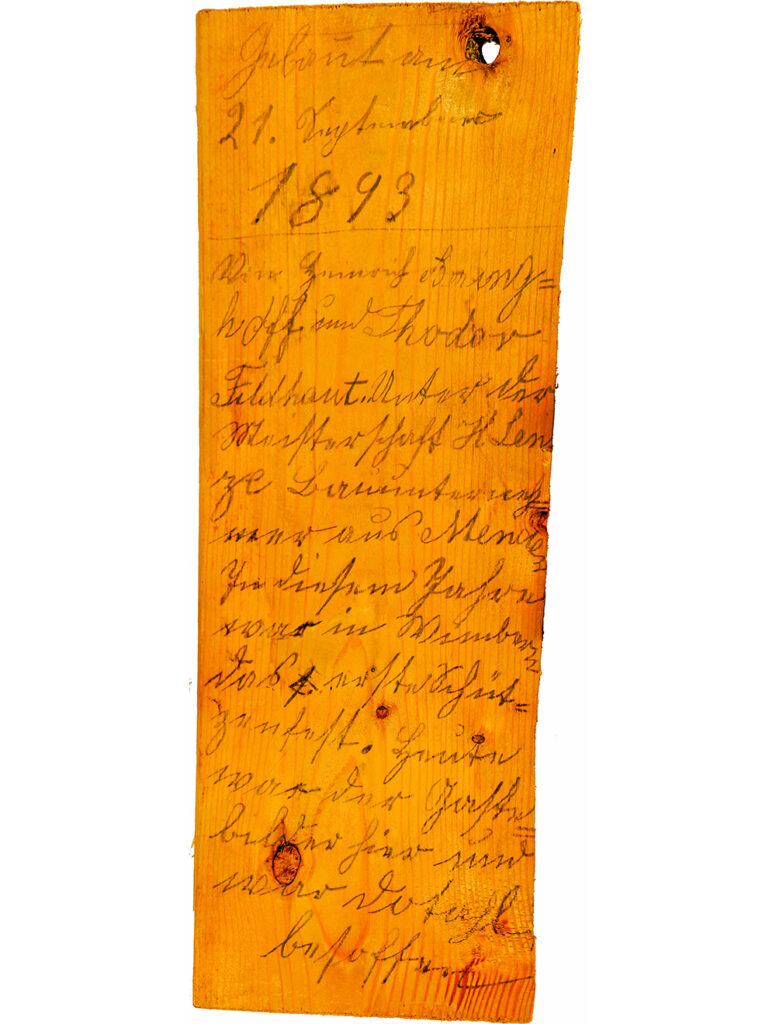 Gebaut am
21. September
1893
Von Heinrich Bering=
hoff und Thodor
Feldhaut. Unter der
Meisterschaft H Len=
ze Bauunterneh
mer aus Menden
In diesem Jahre
war in Wimbern
das erste Schüt=
zenfest. Heute
war der
hier und
war dotahl
besoffen